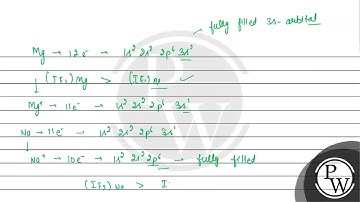 fully filled 3s-orbital
Mg → 12e⁻ → 1s² 2s² 2p⁶ 3s²
(IE₁) Mg > (IE₁)
Mg⁺ → 11e⁻ → 1s² 2s² 2p⁶ 3s¹
Na → 11e⁻ → 1s² 2s² 2p⁶ 3s¹
Na⁺ → 10e⁻ → 1s² 2s² 2p⁶ → fully filled
(IE₂) Na > I
PW
PW